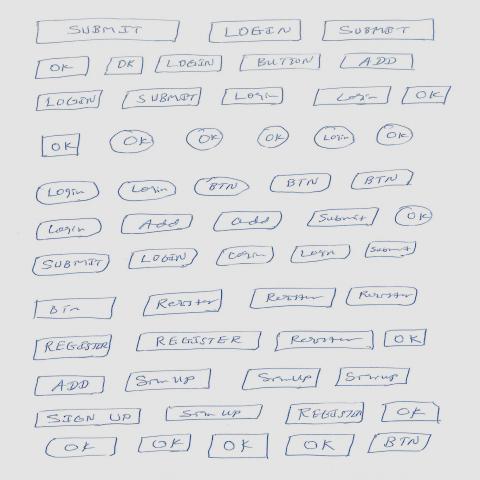 SUBMIT LOGIN SUBMIT
OK OK LOGIN BUTTON ADD
LOGIN SUBMIT Login Login OK
OK OK OK OK Login OK
Login Login BTN BTN BTN
Login Add Add Submit OK
SUBMIT LOGIN Login Login Submit
Btn Register Register Register
REGISTER REGISTER Register OK
ADD Sign UP Sign UP Sign up
SIGN UP Sign UP REGISTER OK
OK OK OK OK BTN